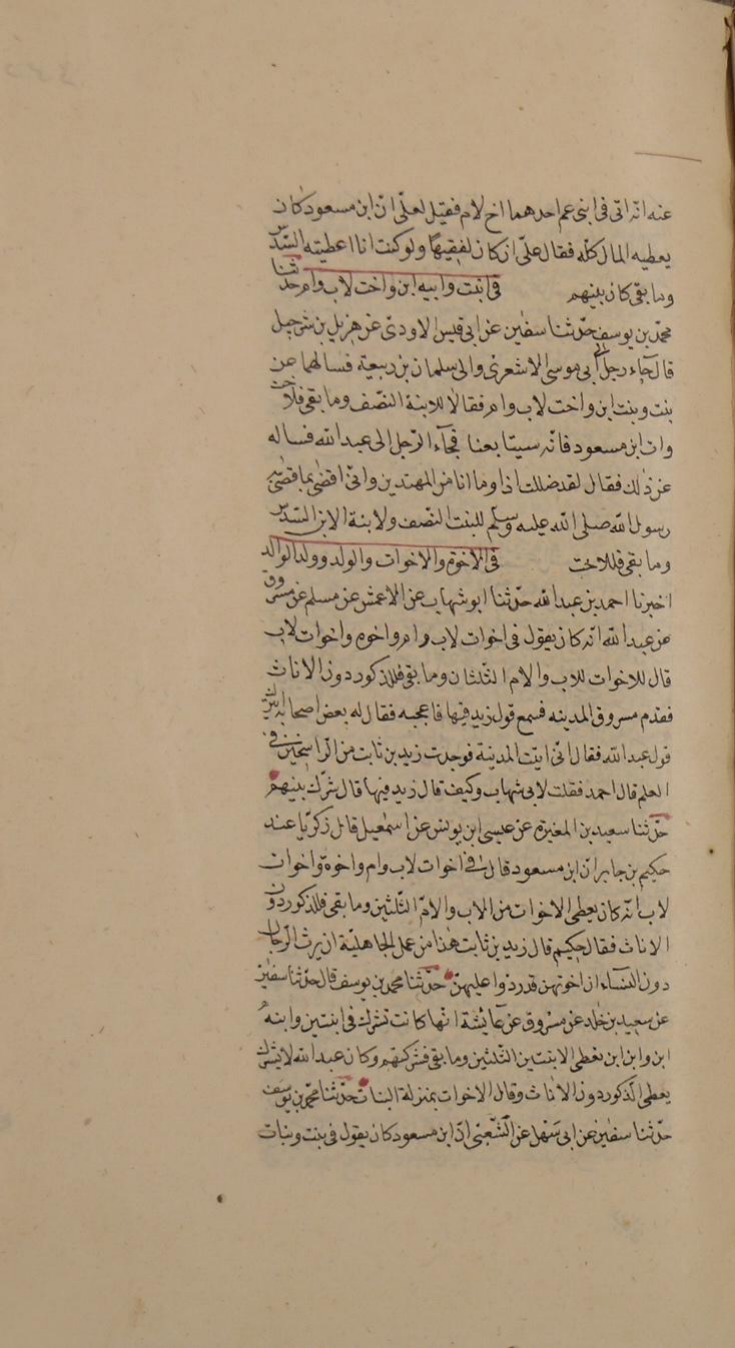 عنه انه اتى فى ابنى عم احدهما اخ لام فقيل لعلى ان ابن مسعود كان
يعطيه المال كله فقال على ان كان لفقيها ولو كنت انا اعطيته السدس
وما بقى كان بينهم فى بنت وابنه ابن واخت لاب وام حدثنا
محمد بن يوسف حدثنا سفين عن ابى قيس الاودى عن هزيل بن شرحبيل
قال جاء رجل الى ابى موسى الاشعرى والى سلمان بن ربيعة فسالهما عن
بنت وبنت ابن واخت لاب وام فقالا للابنة النصف وما بقى فللاخت
وات ابن مسعود فانه سيتابعنا فجاء الرجل الى عبد الله فساله
عن ذلك فقال لقد ضللت اذا وما انا من المهتدين وانى اقضى بما قضى به
رسول الله صلى الله عليه وسلم للبنت النصف ولابنة الابن السدس
وما بقى فللاخت فى الاخوة والاخوات والولد وولد الولد
اخبرنا احمد بن عبد الله حدثنا ابو شهاب عن الاعمش عن مسلم عن مسروق
عن عبد الله انه كان يقول فى اخوات لاب وام واخوه واخوات لاب
قال للاخوات للاب والام الثلثان وما بقى فللذكور دون الاناث
فقدم مسروق المدينه فسمع قول زيد فيها فاعجبه فقال له بعض اصحابه اتترك
قول عبد الله فقال انى اتيت المدينة فوجدت زيد بن ثابت من الراسخين فى
العلم قال احمد فقلت لابى شهاب وكيف قال زيد فيها قال شرك بينهم
حدثنا سعيد بن المغيره عن عيسى ابن يونس عن اسمعيل قال ذكرنا عند
حكيم بن جابر ان ابن مسعود قال فى اخوات لاب وام واخوة واخوات
لاب انه كان يعطى الاخوات من الاب والام الثلثين وما بقى فللذكور دون
الاناث فقال حكيم قال زيد بن ثابت هذا من عمل الجاهلية ان يرث الرجال
دون النساء ان اخوتهن قد ردوا عليهن حدثنا محمد بن يوسف قال حدثنا سفين
عن سعيد بن خالد عن مسروق عن عائشة انها كانت تشرك فى ابنتين وابنه
ابن وابن ابن تعطى الابنتين الثلثين وما بقى فشركتهم وكان عبد الله لا يشرك
يعطى الذكور دون الاناث وقال الاخوات بمنزلة البنات حدثنا محمد بن يوسف
حدثنا سفين عن ابى سهل عن الشعبى ان ابن مسعود كان يقول فى بنت وبنات